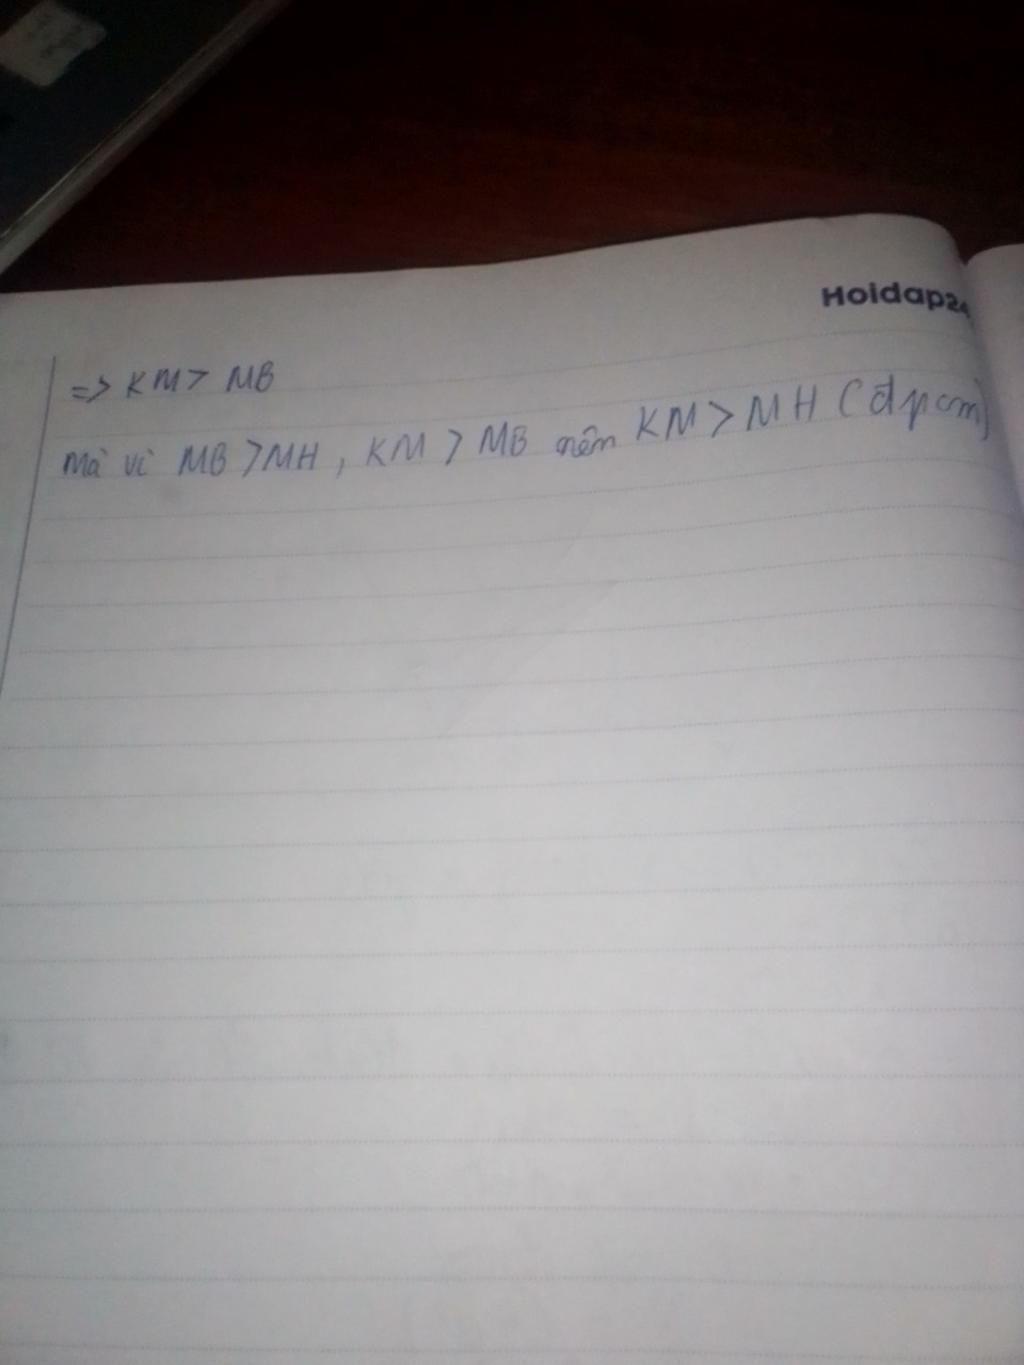 Hoidap24
=> KM > MB
Mà vì MB > MH , KM > MB nên KM > MH (đpcm)